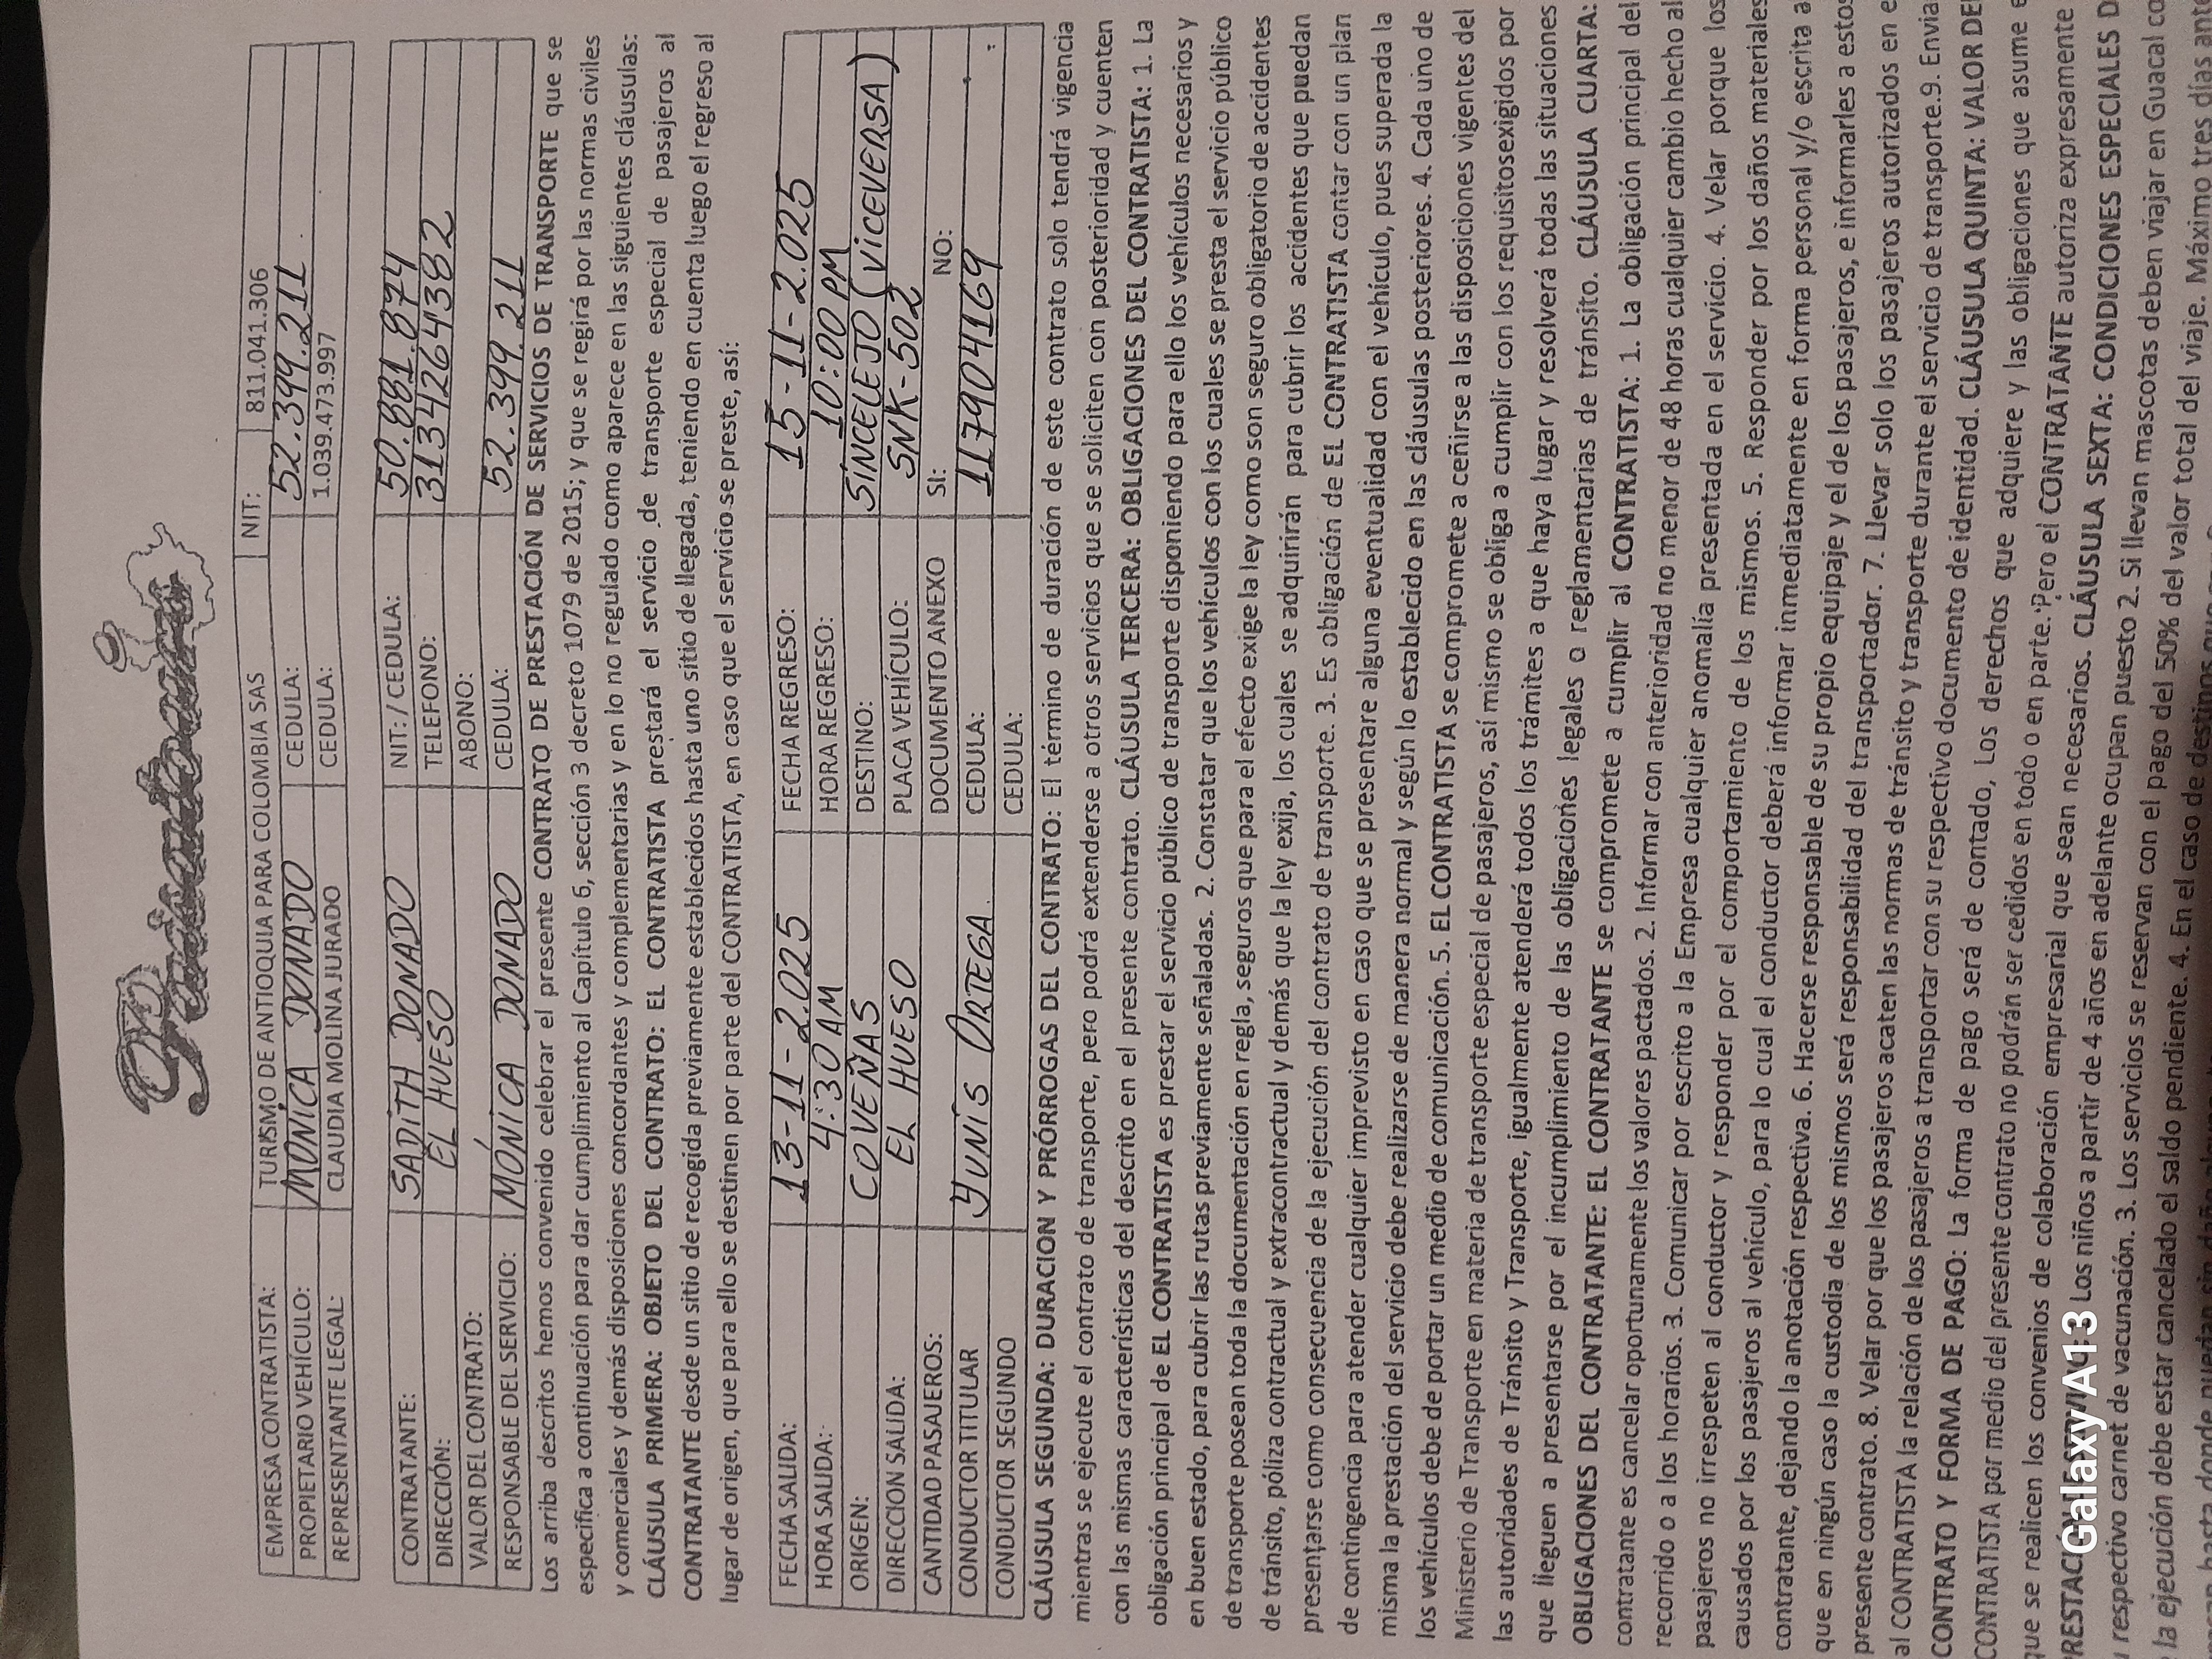 TURISMO DE ANTIOQUIA PARA COLOMBIA SAS
EMPRESA CONTRATISTA: TURISMO DE ANTIOQUIA PARA COLOMBIA SAS NIT: 811.041.306
PROPIETARIO VEHÍCULO: MONICA DONADO CEDULA: 52.399.211
REPRESENTANTE LEGAL: CLAUDIA MOLINA JURADO CEDULA: 1.039.473.997
CONTRATANTE: SADITH DONADO NIT: / CEDULA: 50.881.874
DIRECCIÓN: EL HUESO TELEFONO: 3134264382
VALOR DEL CONTRATO: ABONO:
RESPONSABLE DEL SERVICIO: MÓNICA DONADO CEDULA: 52.399.211
Los arriba descritos hemos convenido celebrar el presente CONTRATO DE PRESTACIÓN DE SERVICIOS DE TRANSPORTE que se
especifica a continuación para dar cumplimiento al Capítulo 6, sección 3 decreto 1079 de 2015; y que se regirá por las normas civiles
y comerciales y demás disposiciones concordantes y complementarias y en lo no regulado como aparece en las siguientes cláusulas:
CLÁUSULA PRIMERA: OBJETO DEL CONTRATO: EL CONTRATISTA prestará el servicio de transporte especial de pasajeros al
CONTRATANTE desde un sitio de recogida previamente establecidos hasta uno sitio de llegada, teniendo en cuenta luego el regreso al
lugar de origen, que para ello se destinen por parte del CONTRATISTA, en caso que el servicio se preste, así:
FECHA SALIDA: 13-11-2.025 FECHA REGRESO: 15-11-2.025
HORA SALIDA: 4:30 AM HORA REGRESO: 10:00 PM
ORIGEN: COVEÑAS DESTINO: SINCELEJO (VICEVERSA)
DIRECCION SALIDA: EL HUESO PLACA VEHÍCULO: SNK-502
CANTIDAD PASAJEROS: DOCUMENTO ANEXO SI: NO:
CONDUCTOR TITULAR YUNIS ORTEGA CEDULA: 1179041169
CONDUCTOR SEGUNDO CEDULA:
CLÁUSULA SEGUNDA: DURACION Y PRÓRROGAS DEL CONTRATO: El término de duración de este contrato solo tendrá vigencia
mientras se ejecute el contrato de transporte, pero podrá extenderse a otros servicios que se soliciten con posterioridad y cuenten
con las mismas características del descrito en el presente contrato. CLÁUSULA TERCERA: OBLIGACIONES DEL CONTRATISTA: 1. La
obligación principal de EL CONTRATISTA es prestar el servicio público de transporte disponiendo para ello los vehículos necesarios y
en buen estado, para cubrir las rutas previamente señaladas. 2. Constatar que los vehículos con los cuales se presta el servicio público
de transporte posean toda la documentación en regla, seguros que para el efecto exige la ley como son seguro obligatorio de accidentes
de tránsito, póliza contractual y extracontractual y demás que la ley exija, los cuales se adquirirán para cubrir los accidentes que puedan
presentarse como consecuencia de la ejecución del contrato de transporte. 3. Es obligación de EL CONTRATISTA contar con un plan
de contingencia para atender cualquier imprevisto en caso que se presentare alguna eventualidad con el vehículo, pues superada la
misma la prestación del servicio debe realizarse de manera normal y según lo establecido en las cláusulas posteriores. 4. Cada uno de
los vehículos debe de portar un medio de comunicación. 5. EL CONTRATISTA se compromete a ceñirse a las disposiciones vigentes del
Ministerio de Transporte en materia de transporte especial de pasajeros, así mismo se obliga a cumplir con los requisitosexigidos por
las autoridades de Tránsito y Transporte, igualmente atenderá todos los trámites a que haya lugar y resolverá todas las situaciones
que lleguen a presentarse por el incumplimiento de las obligaciones legales o reglamentarias de tránsito. CLÁUSULA CUARTA:
OBLIGACIONES DEL CONTRATANTE: EL CONTRATANTE se compromete a cumplir al CONTRATISTA: 1. La obligación principal del
contratante es cancelar oportunamente los valores pactados. 2. Informar con anterioridad no menor de 48 horas cualquier cambio hecho al
recorrido o a los horarios. 3. Comunicar por escrito a la Empresa cualquier anomalía presentada en el servicio. 4. Velar porque los
pasajeros no irrespeten al conductor y responder por el comportamiento de los mismos. 5. Responder por los daños materiales
causados por los pasajeros al vehículo, para lo cual el conductor deberá informar inmediatamente en forma personal y/o escrita a
contratante, dejando la anotación respectiva. 6. Hacerse responsable de su propio equipaje y el de los pasajeros, e informarles a estos
que en ningún caso la custodia de los mismos será responsabilidad del transportador. 7. Llevar solo los pasajeros autorizados en e
presente contrato. 8. Velar por que los pasajeros acaten las normas de tránsito y transporte durante el servicio de transporte.9. Enviar
al CONTRATISTA la relación de los pasajeros a transportar con su respectivo documento de identidad. CLÁUSULA QUINTA: VALOR DEL
CONTRATO Y FORMA DE PAGO: La forma de pago será de contado, Los derechos que adquiere y las obligaciones que asume e
CONTRATISTA por medio del presente contrato no podrán ser cedidos en todo o en parte. Pero el CONTRATANTE autoriza expresamente
que se realicen los convenios de colaboración empresarial que sean necesarios. CLÁUSULA SEXTA: CONDICIONES ESPECIALES D
PRESTACIÓN Los niños a partir de 4 años en adelante ocupan puesto 2. Si llevan mascotas deben viajar en Guacal co
respectivo carnet de vacunación. 3. Los servicios se reservan con el pago del 50% del valor total del viaje. Máximo tres días ante
la ejecución debe estar cancelado el saldo pendiente. 4. En el caso de destinos
Galaxy A13